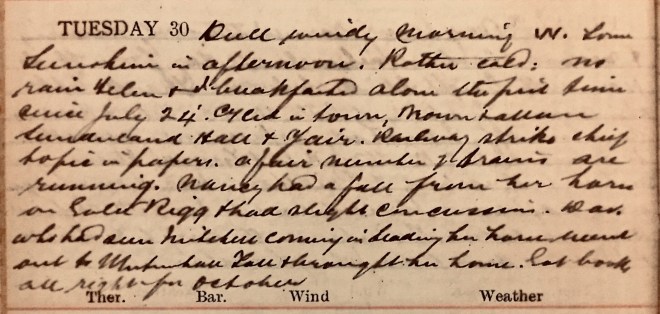 TUESDAY 30 Dull windy morning W. Some
Sunshine in afternoon. Rather cold: no
rain Helen & I breakfasted alone the first time
since July 24. Cycled in town,
Sunderland Hall & Fair. Railway strike chief
topic in papers. a fair number of trains are
running. Nancy had a fall from her horse
on Rigg & had slight concussion.
who had seen Mitchell coming in leading her horse went
out to Hall & brought her home. Got book
all right for October
Ther. Bar. Wind Weather